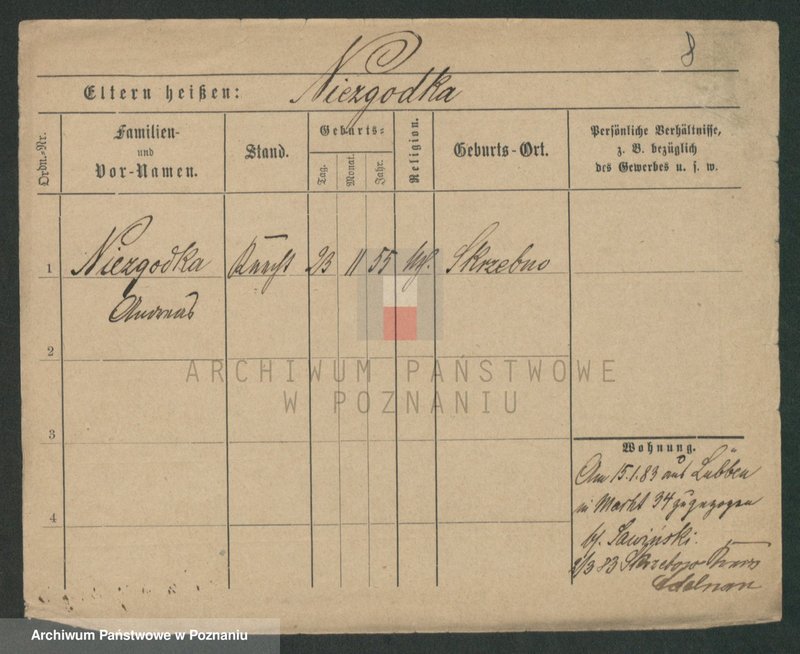 8
Eltern heißen: Niezgodka
Ordn.-Nr.
Familien-
und
Vor-Namen.
Stand.
Geburts-
Tag.
Monat.
Jahr.
Religion.
Geburts-Ort.
Persönliche Verhältnisse,
z. B. bezüglich
des Gewerbes u. s. w.
1 Niezgodka Knecht 23 11 55 Skrzebno
Andreas
2
ARCHIWUM PAŃSTWOWE
W POZNANIU
3
Wohnung.
Am 15.1.83 aus Lübben
in Markt 34 zugezogen
4
b/. Sawiński.
2/3 83
Adelnau
Archiwum Państwowe w Poznaniu